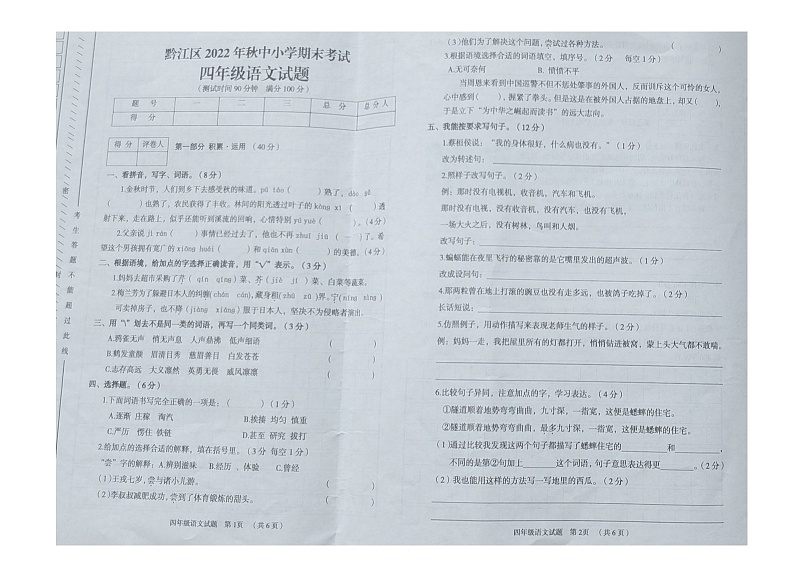 黔江区 2022 年秋中小学期末考试
四年级语文试题
(测试时间 90 分钟 满分 100 分)
题 号 一 二 三 总 分 总 分 人
得 分
得 分 评卷人
第一部分 积累·运用 (40 分)
一、看拼音，写字、词语。(8 分)
1.金秋时节，人们到乡下去感受秋的味道。pú táo ( ) 熟了，dào gǔ
( ) 也熟了，农民获得了丰收。林间的阳光透过叶子的 kòng xì ( ) 透
射下来，走在路上，似乎还能听到溪流的回响，心情特别 yú yuè ( )。(4分)
2.父亲说 jì rán ( ) 事情已经过去了，他也不再 zhuī jiū ( ) 了。希
望这个男孩拥有宽广的 xiōng huái ( ) 和 qiān xùn ( ) 的美德。(4分)
二、根据语境，给加点的字选择正确读音，用“√”表示。(3 分)
1.妈妈去超市采购了芹 ( qín qíng ) 菜、芥 ( jiè jì ) 菜、白菜等蔬菜。
2.梅兰芳为了躲避日本人的纠缠( chán cán )，藏身租( zū zhū )界，宁( níng nìng )
可卖掉房子，也不降 ( jiàng xiáng ) 服于日本人，坚决不为侵略者演出。
三、用“\”划去不是同一类的词语，再写一个同类词。(3 分)
A.鸦雀无声 悄无声息 人声鼎沸 低声细语 ( )
B.鹤发童颜 眉清目秀 慈眉善目 白发苍苍 ( )
C.志存高远 大义凛然 英勇无畏 威风凛凛 ( )
四、选择题。(6 分)
1.下面词语书写完全正确的一项是：( ) (1 分)
A.逐渐 庄稼 淘汽 B.挨揍 均匀 慎重
C.严历 愣住 铁链 D.甚至 研究 拔打
2.给加点的选择合适的解释，填在括号里。(3 分 每空 1 分)
“尝”字的解释：A.辨别滋味 B.经历 、体验 C.曾经
(1)王戎七岁，尝与诸小儿游。 ( )
(2)李叔叔减肥成功，尝到了体育锻炼的甜头。 ( )
四年级语文试题 第 1页 (共 6 页)
(3)他们为了解决这个问题，尝试过各种方法。 ( )
3.根据语境选择合适的词语填空，填序号。(2 分 每空 1 分)
A.无可奈何 B. 愤愤不平
当周恩来看到中国巡警不但不惩处肇事的外国人，反而训斥这个可怜的女人，
心中感到( )，握紧了拳头，但是这是在被外国人占据的地盘上，却又( )，
于是立下“为中华之崛起而读书”的远大志向。
五、我能按要求写句子。(12 分)
1.蔡桓侯说：“我的身体很好，什么病也没有。” (1 分)
改为转述句：
2.照样子改写句子。(2 分)
例：那时没有电视机，收音机，汽车和飞机。
那时没有电视，没有收音机，没有汽车，也没有飞机。
一场大火之后，没有树林，鸟叫和人烟。
改写句子：
3.蝙蝠能在夜里飞行的秘密靠的是它嘴里发出的超声波。(1 分)
改成设问句：
4.那两粒曾在地上打滚的豌豆也没有走多远，也被鸽子吃掉了。(2 分)
长话短说：
5.仿照例子，用动作描写来表现老师生气的样子。(2 分)
例：妈妈一走，我把屋里所有的灯都打开，悄悄钻进被窝，蒙上头大气都不敢喘。
6.比较句子异同，注意加点的字，学习表达。(4 分)
①隧道顺着地势弯弯曲曲，九寸深，一指宽，这便是蟋蟀的住宅。
②隧道顺着地势弯弯曲曲，最多九寸深，一指宽，这便是蟋蟀的住宅。
(1)通过比较我发现这两个句子都描写了蟋蟀住宅的 和 ，
不同的是第②句加上 这个词语，句子意思表达得更 。(2 分)
(2)我也能用这样的方法写一写地里的西瓜。(2 分)
四年级语文试题 第 2页 (共 6 页)